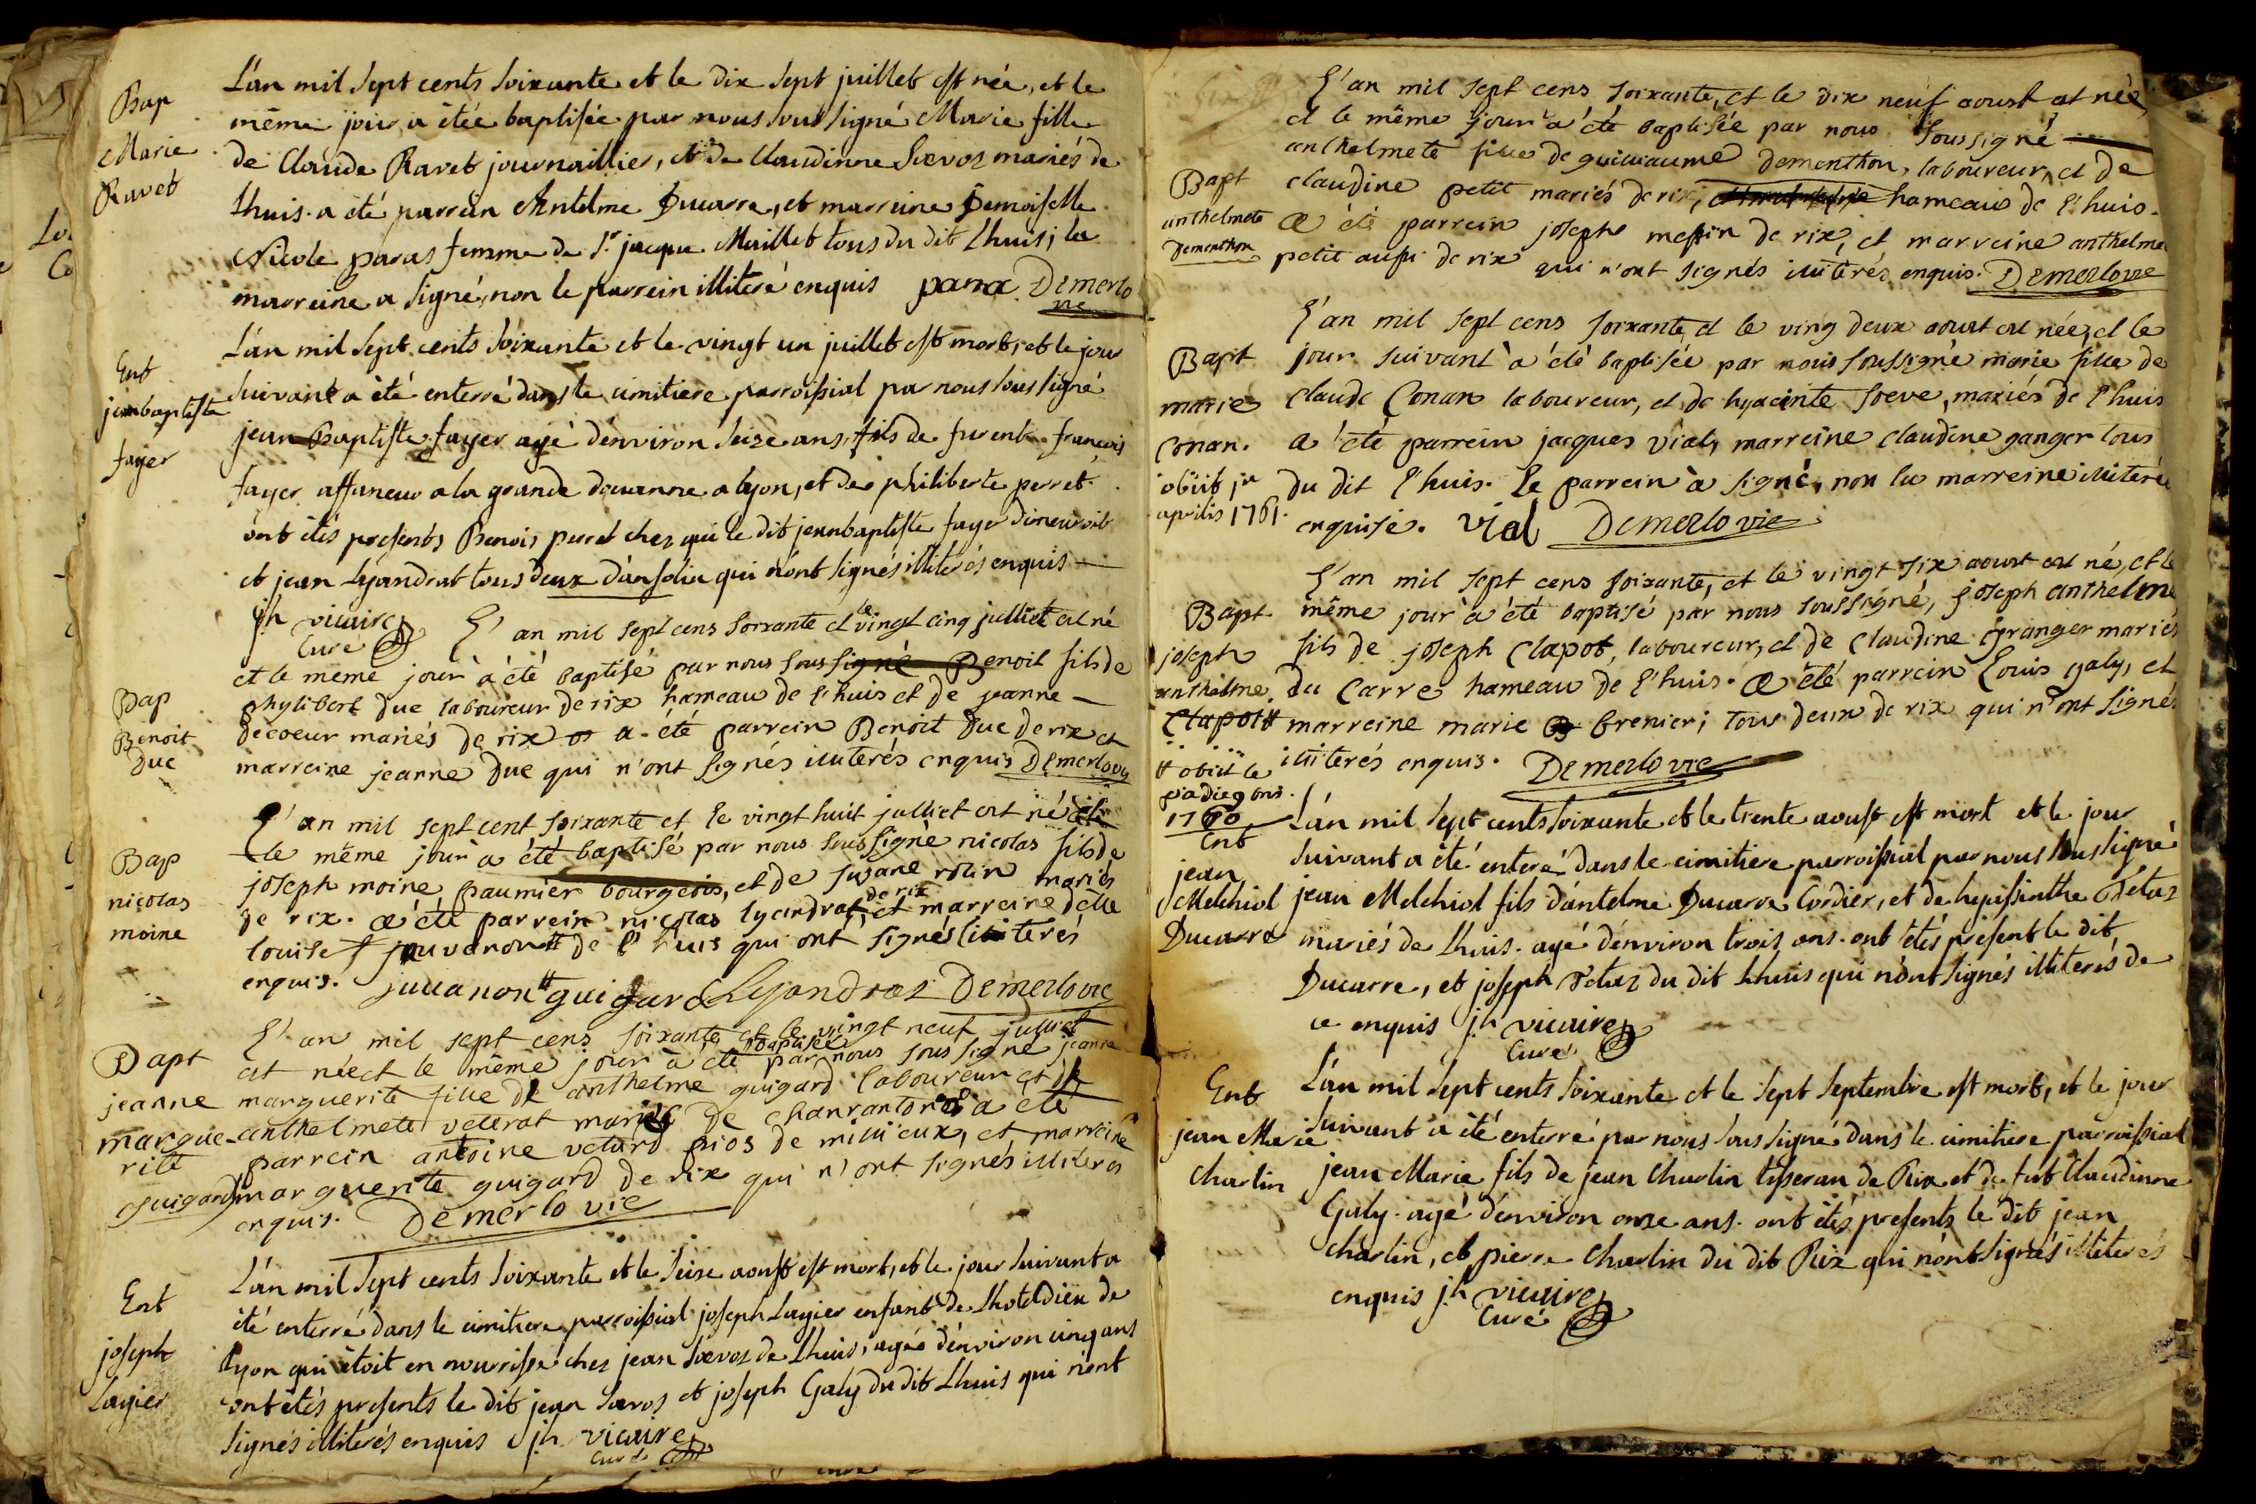 Bap
Marie
Ravet
L'an mil sept cents soixante et le dix sept juillet est née, et le
même jour a étée baptisée par nous sous signé Marie fille
de Claude Ravet journaillier, et de Claudinne Sœvoz mariés de
Lhuis. a été parrain Antelme Ducarre, et marraine Demoiselle
Nicole paras femme de Sr. jacque Maillet tous du dit Lhuis; la
marreine a signé, non le parrein illiteré enquis para Demerlo
vie
Ent
jeanbaptiste
fayer
L'an mil sept cents soixante et le vingt un juillet est mort, et le jour
suivant a été enterré dans le cimitiere parroissial par nous sous signé
jean Baptiste fayer agé d'environ seize ans, fils de furent françois
fayer affaneur a la grande douanne a lyon, et de philiberte perret.
ont étés presents Benois perret chez qui le dit jeanbaptiste fayer
et jean Lyandrat tous deux d'ansolin qui n'ont signés illiterés enquis
jh vicaire
Curé
Bap
Benoit
Duc
L'an mil sept cens soixante et le vingt cinq julliet est né
et le même jour à été baptisé par nous soussigné Benoit fils de
phylibert duc laboureur de rix hameau de l'huis et de jeanne
decoeur mariés de rix a été parrein Benoit Duc de rix et
marreine jeanne Duc qui n'ont signés illiterés enquis Demerlovie
Bap
nicolas
moine
L'an mil sept cent soixante et le vingt huit julliet est né et
le même jour a été baptisé par nous soussigné nicolas fils de
joseph moine paumier bourgeois, et de susane rolin mariés
de rix. a été parrein nicolas lyandrat de rix et marreine delle
louise juvanon de l'huis qui ont signés
enquis. juvanon guigard Lyandraz Demerlovie
Bapt
jeanne
margue-
rite
guigard
L'an mil sept cens soixante et le vingt neuf julliet
est née et le même jour à été baptisée par nous sous signé jeanne
marguerite fille de anthelme guigard laboureur et de
anthelmete veterat mariés de charantonod a été
parrein antoine vetard pios de millieux, et marreine
marguerite guigard de rix qui n'ont signés illiterés
enquis. Demerlovie
Ent
joseph
Layier
L'an mil sept cents soixante et le seize aoust est mort, et le jour suivant a
été enterré dans le cimitiere parroissial joseph Layier enfant de Lhotel dieu de
Lyon qui étoit en nourrisse chez jean Sœvoz de Lhuis, agé d'environ cinq ans
ont étés presents le dit jean Sœvos et joseph Galy du dit Lhuis qui n'ont
signés illiterés enquis jh vicaire
Curé
Bapt
anthelmete
Dementhon
L'an mil sept cens soixante, et le dix neuf aoust est née
et le même jour a été baptisée par nous soussigné
anthelmete fille de guillaume dementhon, laboureur, et de
claudine petit mariés de rix, hameau de l'huis.
a été parrein joseph messin de rix, et marreine anthelme
petit aussi de rix qui n'ont signés illiterés enquis. Demerlovie
Bapt
marie
Conan.
obiit ja
aprilis 1761.
L'an mil sept cens soixante, et le ving deux aoust est née, et le
jour suivant à été baptisée par nous soussigné marie fille de
claude Conan laboureur, et de hyacinte soeve, mariés de l'huis
a été parrein jacques vial, marreine claudine ganger tous
du dit l'huis. le parrein à signé, non la marreine illiterée
enquise. Vial Demerlovie
Bapt
joseph
anthelme
Clapot
obiit le
1760
L'an mil sept cens soixante, et le vingt six aoust est né, et le
même jour à été baptisé par nous soussigné, joseph anthelme
fils de joseph Clapot, laboureur, et de Claudine granger mariés
du Carre hameau de l'huis. a été parrein Louis galy, et
marreine marie brenier; tous deux de rix qui n'ont signés
illiterés enquis. Demerlovie
Ent
jean
Melchiol
Ducarre
L'an mil sept cents soixante et le trente aoust est mort et le jour
suivant a été enteré dans le cimitiere parroissial par nous sous signé
jean Melchiol fils d'antelme Ducarre Cordier, et de hepissinthe Tetaz
mariés de Lhuis. agé d'environ trois ans. ont étés present le dit
Ducarre, et joseph Tetaz du dit Lhuis qui n'ont signés illiterés de
ce enquis jh vicaire
Curé
Ent
jean Marie
Charlin
L'an mil sept cents soixante et le sept septembre est mort, et le jour
suivant a été enterré par nous sous signé dans le cimitiere parroissial
jean Marie fils de jean Charlin tisseran de Rix et de fut Claudinne
Galy. agé d'environ onze ans. ont étés presents le dit jean
charlin, et pierre Charlin du dit Rix qui n'ont signés illiterés
enquis jh vicaire
Curé